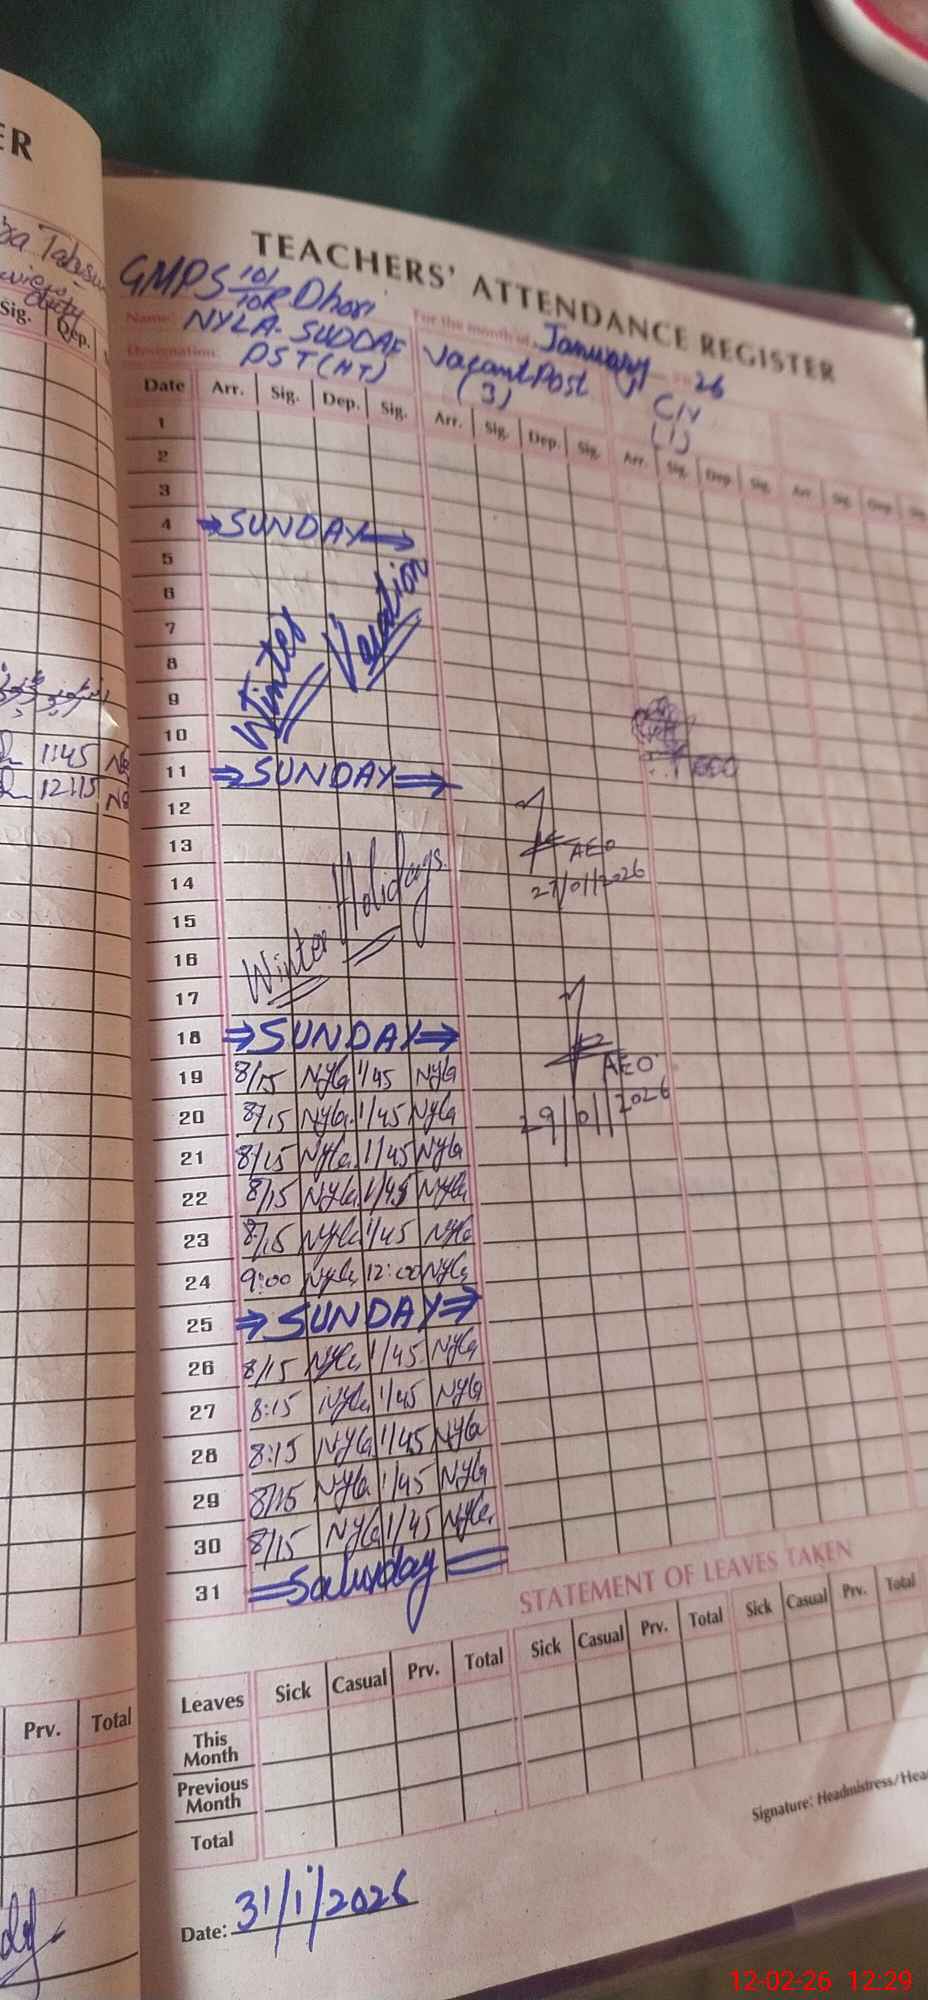 ER
Sig. Dep.
1:45
12:15
Prv. Total
TEACHERS' ATTENDANCE REGISTER
GMPS 101/10R Dhori
Name: NYLA SUDDAF For the month of January 26
Designation: PST (HT) Vacant Post (3) C/V (1)
Date Arr. Sig. Dep. Sig. Arr. Sig. Dep. Sig. Arr. Sig. Dep. Sig. Arr. Sig. Dep. Sig.
1
2
3
4 SUNDAY
5
6
7
8
9
10
Winter Vacation
11 SUNDAY
12
13 AEO
14 27/01/2026
15
16
17
Winter Holidays
18 SUNDAY
19 8/15 Nyla 1/45 Nyla AEO
20 8/15 Nyla 1/45 Nyla 29/01/2026
21 8/15 Nyla 1/45 Nyla
22 8/15 Nyla 1/45 Nyla
23 8/15 Nyla 1/45 Nyla
24 9:00 Nyla 12:00 Nyla
25 SUNDAY
26 8/15 Nyla 1/45 Nyla
27 8:15 Nyla 1/45 Nyla
28 8:15 Nyla 1/45 Nyla
29 8/15 Nyla 1/45 Nyla
30 8/15 Nyla 1/45 Nyla
31 Saturday
STATEMENT OF LEAVES TAKEN
Leaves Sick Casual Prv. Total Sick Casual Prv. Total Sick Casual Prv. Total
This Month
Previous Month
Total
Signature: Headmistress/Hea
Date: 31/1/2026
12-02-26 12:29